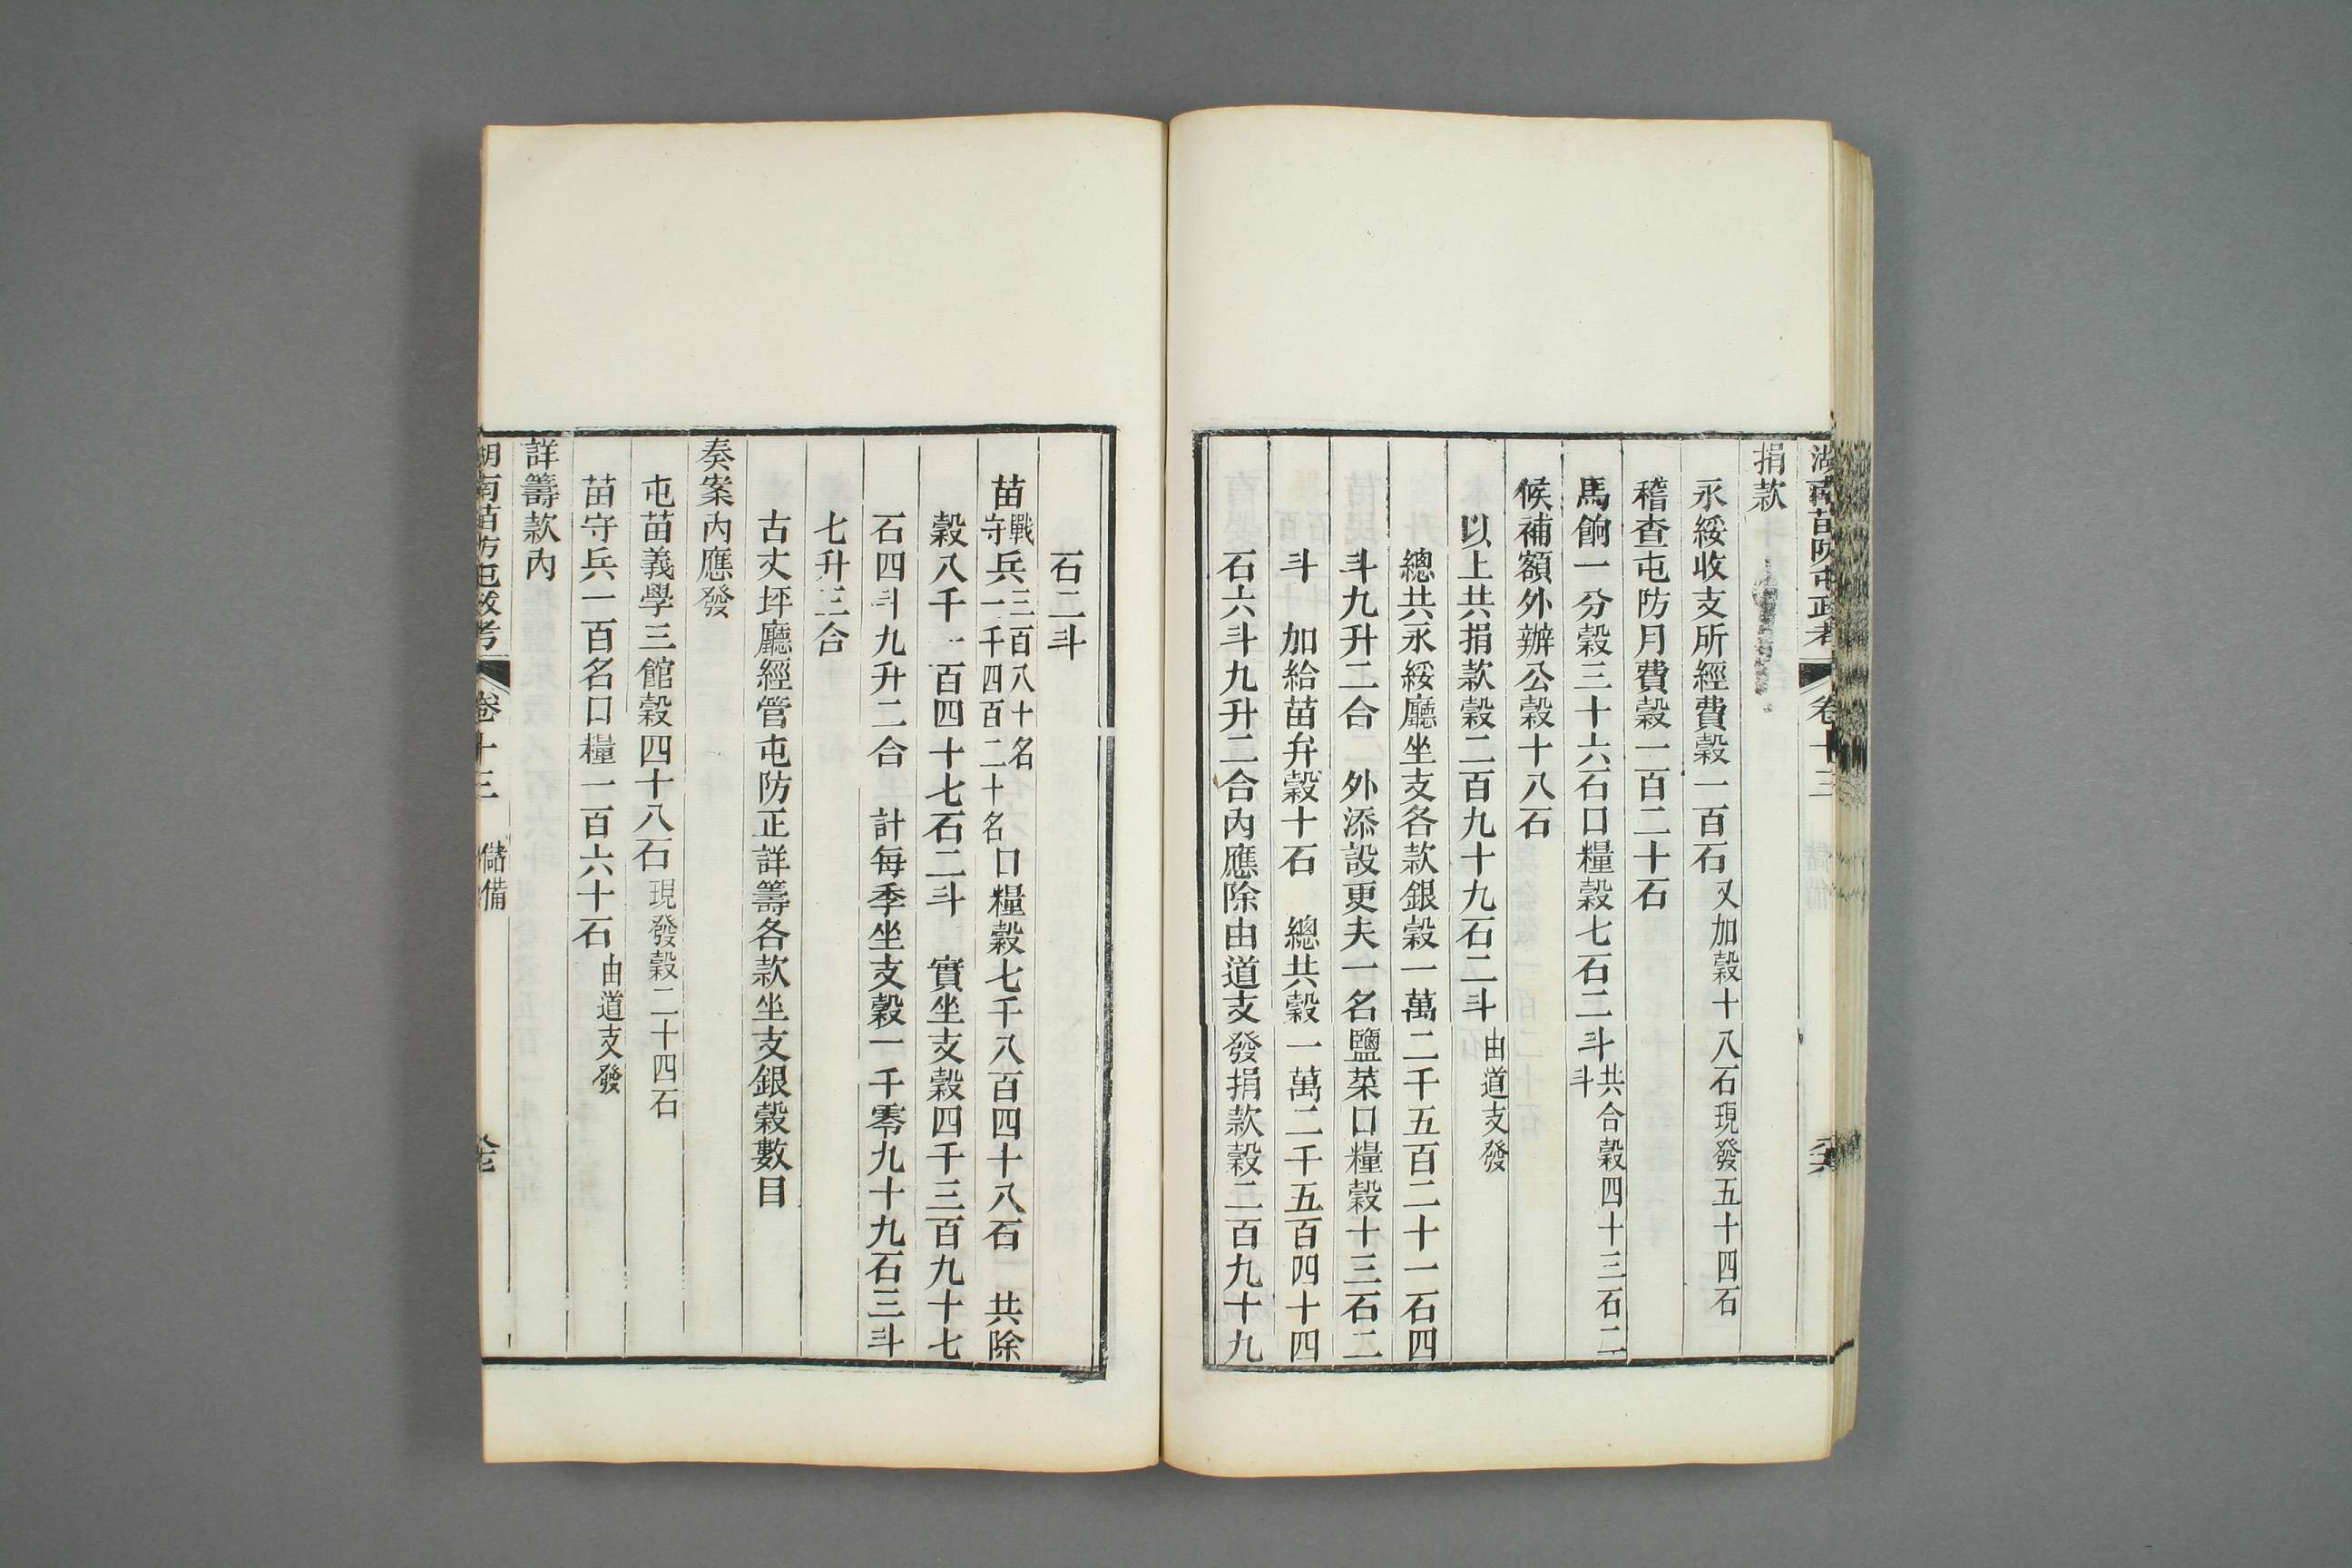 湖南苗防屯政考 卷十三 儲備
捐款
永綏收支所經費穀一百石又加穀十八石現發五十四石
稽查屯防月費穀一百二十石
馬餉一分穀三十六石口糧穀七石二斗共合穀四十三石二斗
候補額外辦公穀十八石
以上共捐款穀二百九十九石二斗由道支發
總共永綏廳坐支各款銀穀一萬二千五百二十一石四
斗九升二合 外添設更夫一名鹽菜口糧穀十三石二
斗 加給苗弁穀十石 總共穀一萬二千五百四十四
石六斗九升二合內應除由道支發捐款穀二百九十九
石二斗
苗戰兵三百八十名守兵一千四百二十名口糧穀七千八百四十八石 共除
穀八千一百四十七石二斗 實坐支穀四千三百九十七
石四斗九升二合 計每季坐支穀一千零九十九石三斗
七升三合
古丈坪廳經管屯防正詳籌各款坐支銀穀數目
奏案內應發
屯苗義學三館穀四十八石現發穀二十四石
苗守兵一百名口糧一百六十石由道支發
詳籌款內
湖南苗防屯政考 卷十三 儲備